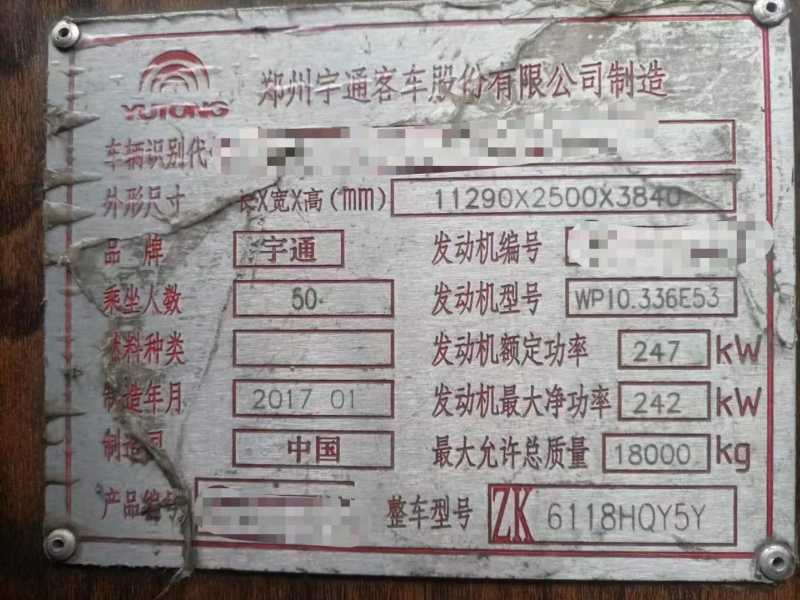 YUTONG 郑州宇通客车股份有限公司制造
车辆识别代
外形尺寸 长X宽X高(mm) 11290X2500X3840
品牌 宇通 发动机编号
乘坐人数 50 发动机型号 WP10.336E53
料种类 发动机额定功率 247 kW
制造年月 2017 01 发动机最大净功率 242 kW
制造 中国 最大允许总质量 18000 kg
产品编号 整车型号 ZK 6118HQY5Y